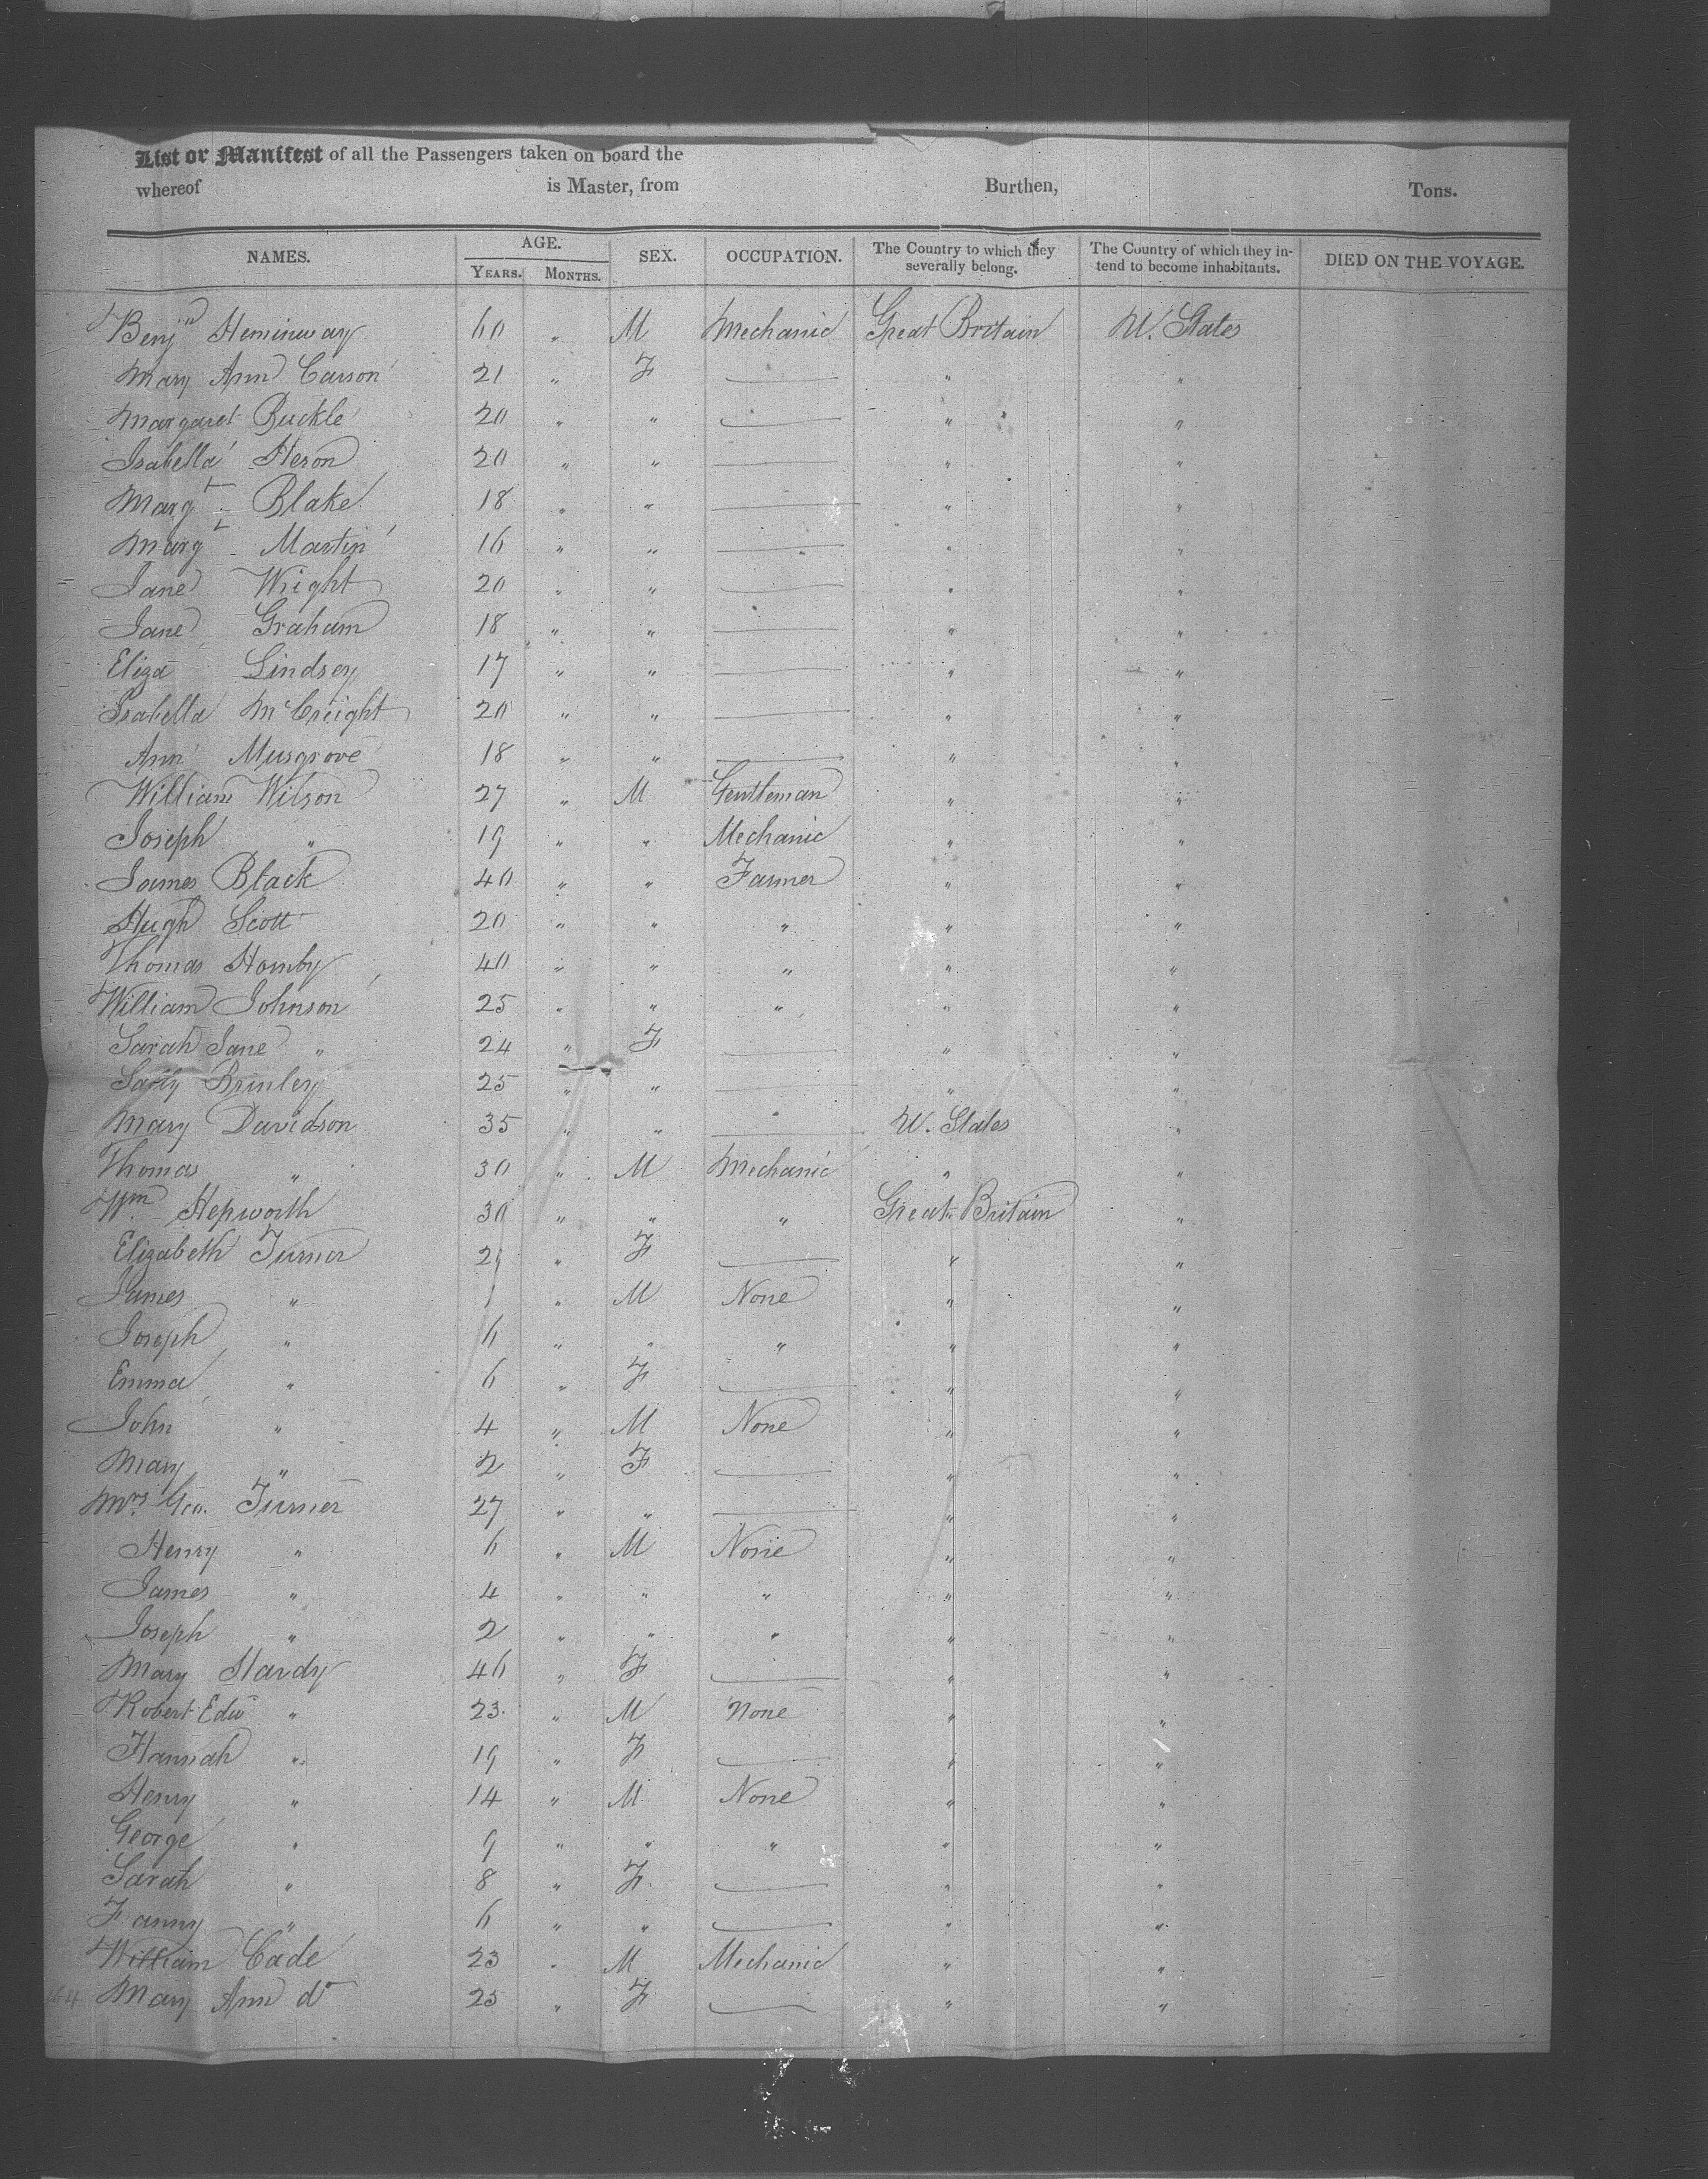 List or Manifest of all the Passengers taken on board the
whereof is Master, from Burthen, Tons.
NAMES. AGE. SEX. OCCUPATION. The Country to which they severally belong. The Country of which they intend to become inhabitants. DIED ON THE VOYAGE.
YEARS. MONTHS.
Benjn Heminway 60 " M Mechanic Great Britain U. States
Mary Ann Carson 21 " F — " "
Margaret Buckle 20 " " — " "
Isabella Heron 20 " " — " "
Margt Blake 18 " " — " "
Margt Martin 16 " " — " "
Jane Wright 20 " " — " "
Jane Graham 18 " " — " "
Eliza Lindsey 17 " " — " "
Isabella McCreight 20 " " — " "
Ann Musgrove 18 " " — " "
William Wilson 27 " M Gentleman " "
Joseph " 19 " " Mechanic " "
James Black 40 " " Farmer " "
Hugh Scott 20 " " " " "
Thomas Hornby 40 " " " " "
William Johnson 25 " " " " "
Sarah Jane " 24 " F — " "
Brinley 25 " " — " "
Mary Davidson 35 " " — U. States "
Thomas " 30 " M Mechanic " "
Wm Hepworth 30 " " " Great Britain "
Elizabeth Turner " F — " "
James " 1 " M None " "
Joseph " 6 " " " " "
Emma " 6 " F — " "
John " 4 " M None " "
Mary " 2 " F — " "
Mrs Geo. Turner 27 " " — " "
Henry " 6 " M None " "
James " 4 " " " " "
Joseph " 2 " " " " "
Mary Hardy 46 " F — " "
Robert Edw " 23 " M None " "
Hannah " 19 " F — " "
Henry " 14 " M None " "
George " 9 " " " " "
Sarah " 8 " F — " "
Fanny " 6 " " — " "
William Cade 23 " M Mechanic " "
Mary Ann do 25 " F — " "